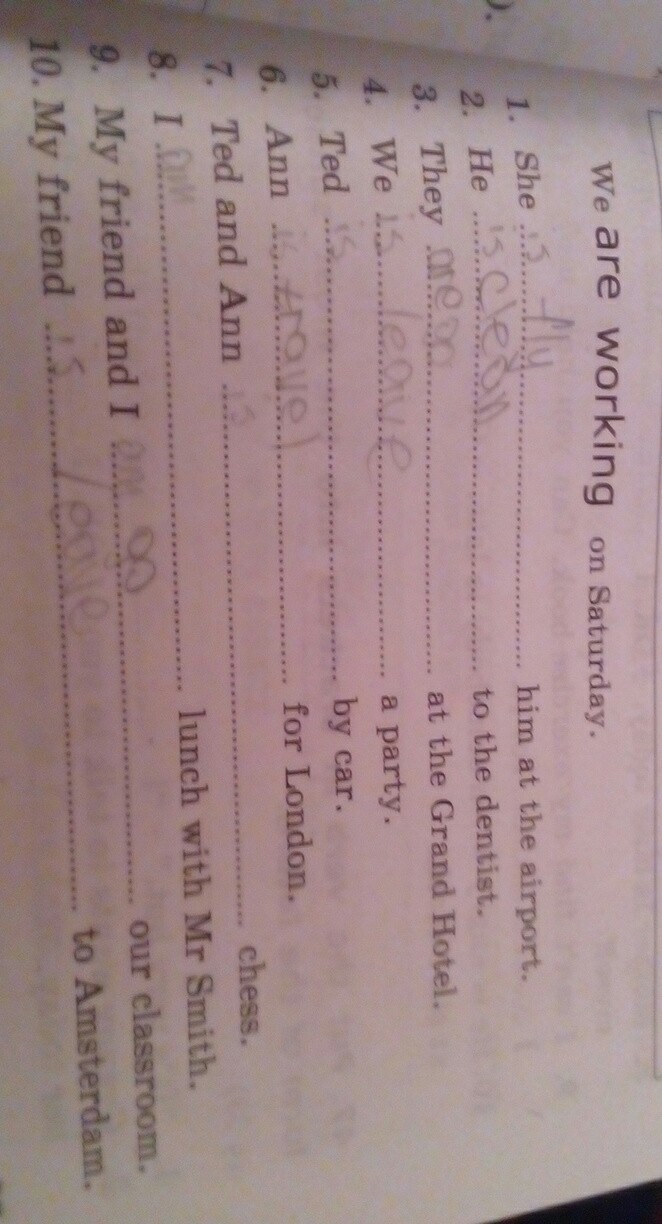 We are working on Saturday.
1. She is fly him at the airport.
2. He is clean to the dentist.
3. They are at the Grand Hotel.
4. We is leaive a party.
5. Ted is by car.
6. Ann is travel for London.
7. Ted and Ann is chess.
8. I am lunch with Mr Smith.
9. My friend and I am go our classroom.
10. My friend is to Amsterdam.